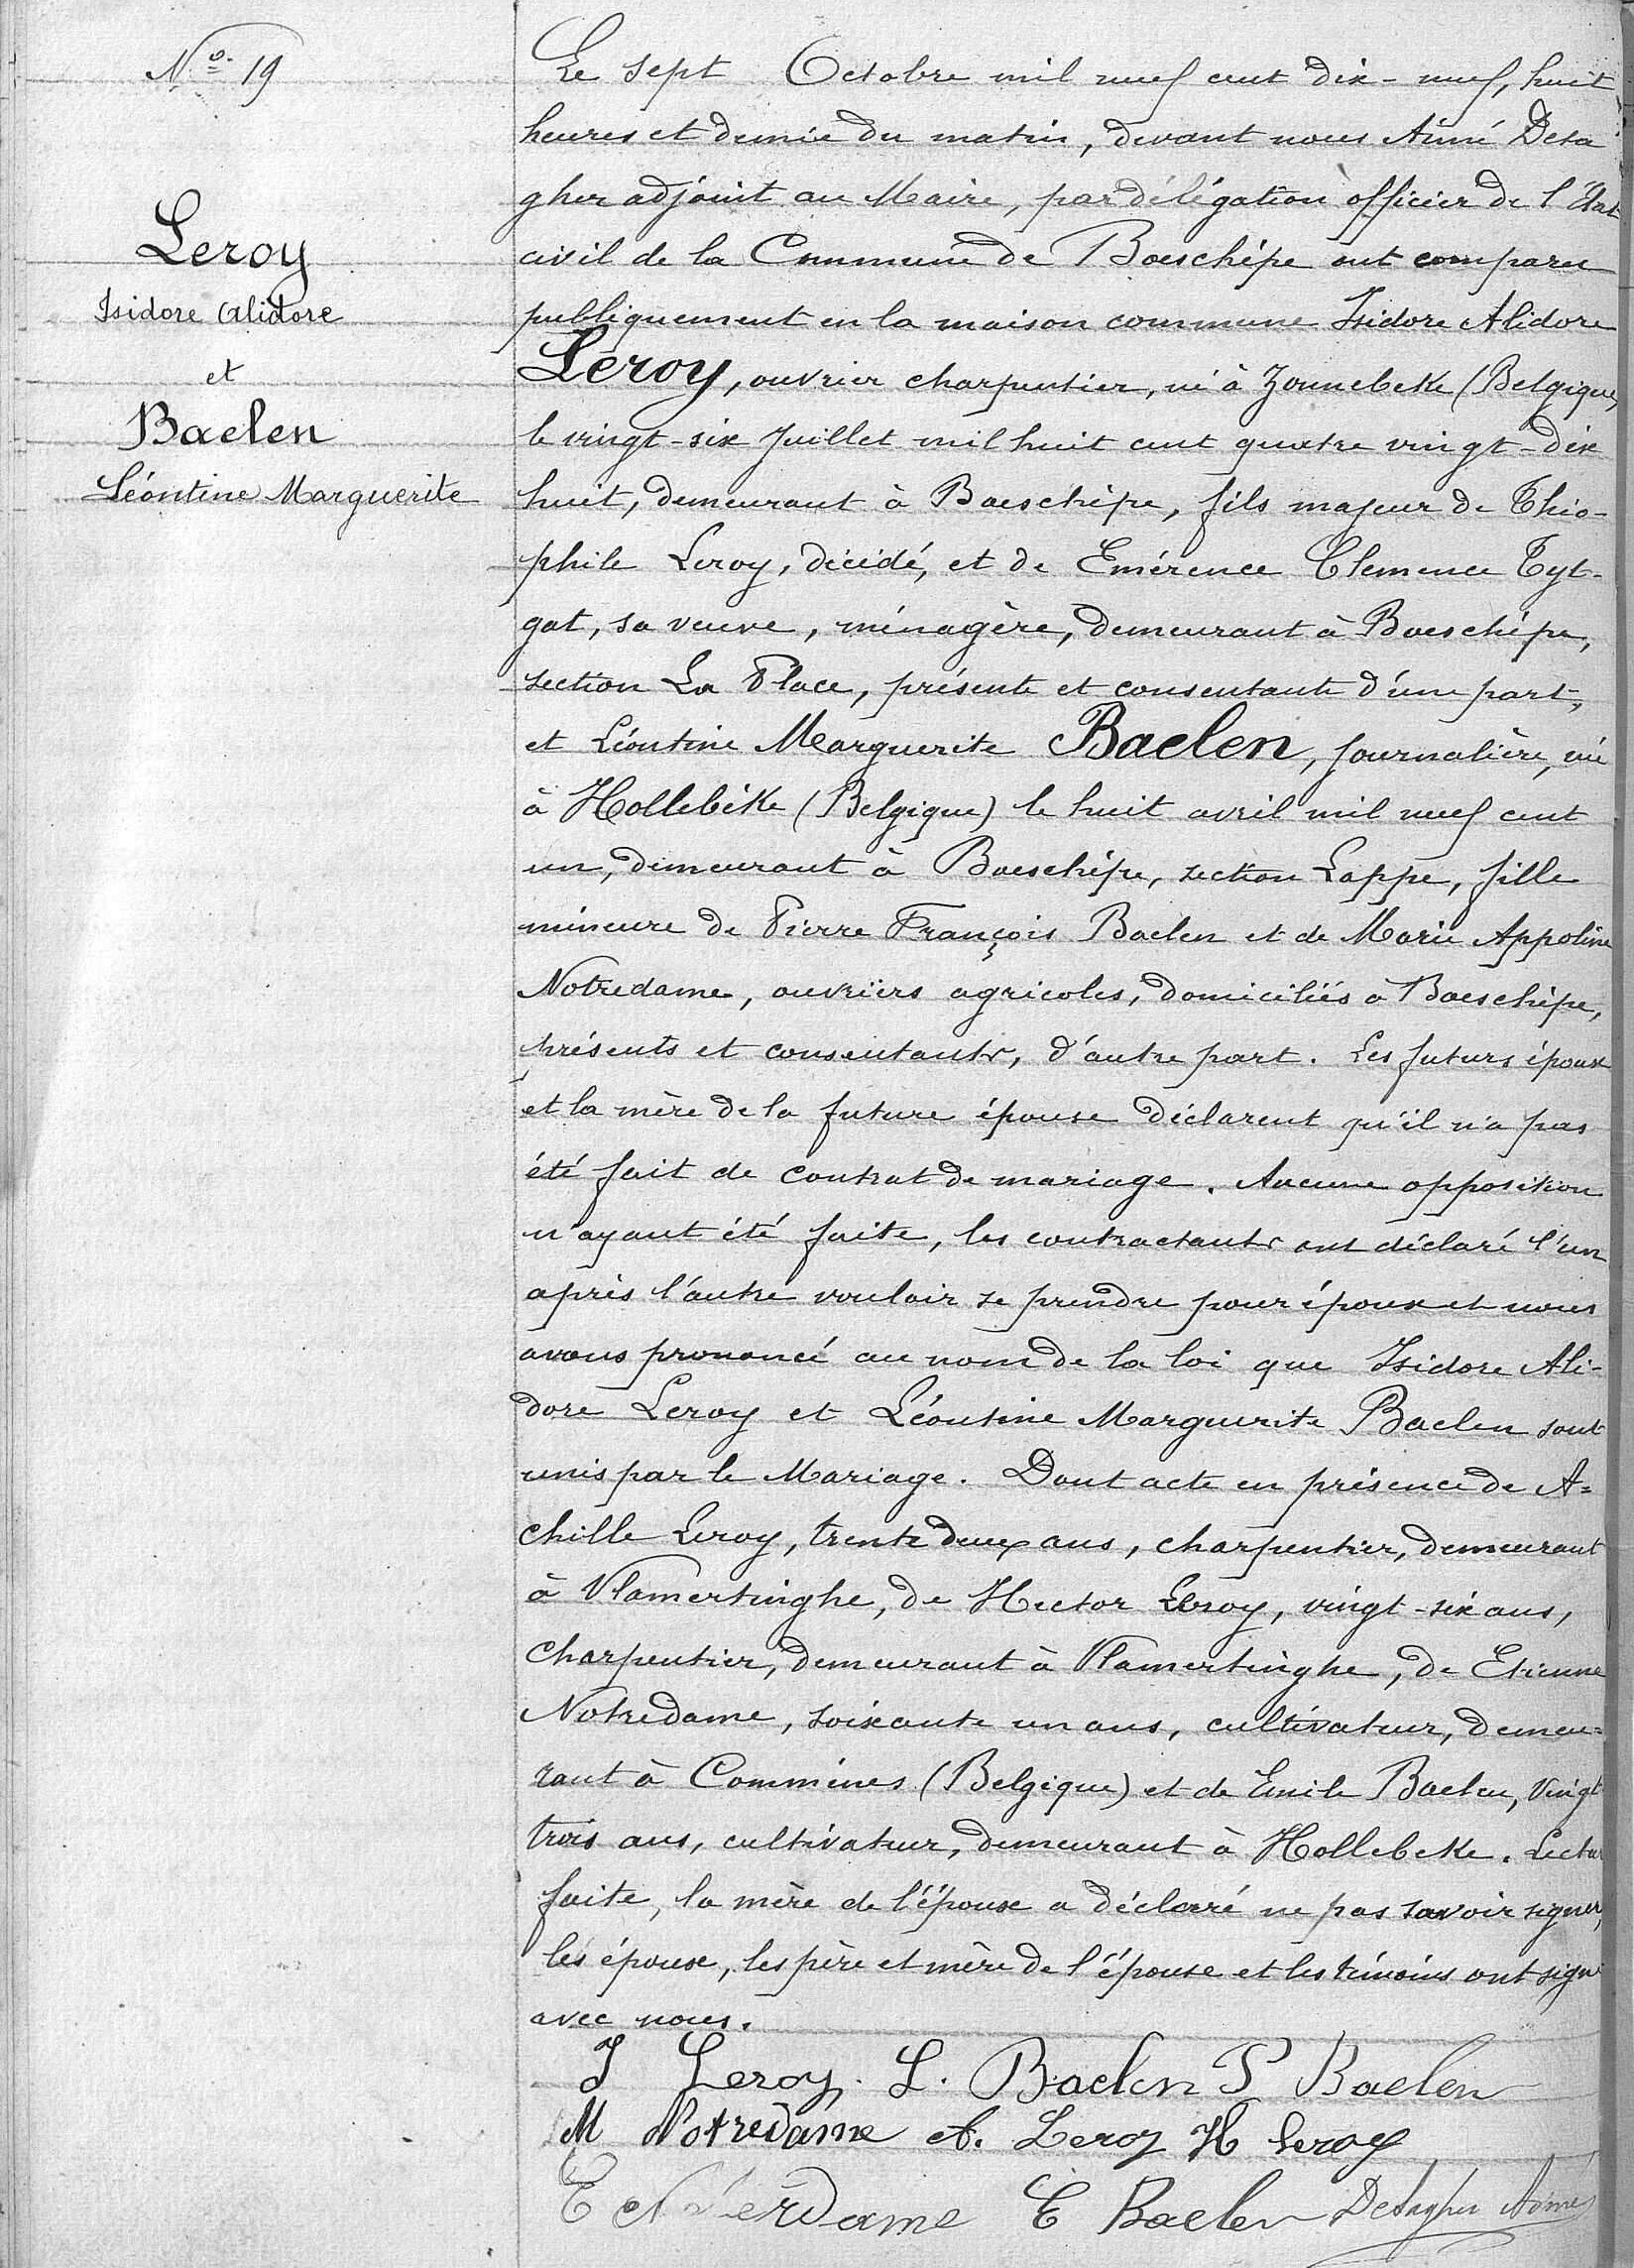 Nº 19
Leroy
Isidore Alidore
et
Baelen
Léontine Marguerite
Le sept Octobre mil neuf cent dix-neuf, huit
heures et demie du matin, devant nous Aimé Desa
gher adjoint au Maire, par délégation officier de l'État
civil de la Commune de Boeschèpe ont comparu
publiquement en la maison commune Isidore Alidore
Leroy, ouvrier charpentier, né à Zonnebeke (Belgique)
le vingt-six Juillet mil huit cent quatre vingt-dix
huit, demeurant à Boeschèpe, fils majeur de Théo-
phile Leroy, décédé, et de Emérence Clemence Tyt-
gat, sa veuve, ménagère, demeurant à Boeschèpe,
section La Place, présente et consentante d'une part,
et Léontine Marguerite Baelen, journalière, née
à Hollebéke (Belgique) le huit avril mil neuf cent
un, demeurant à Boeschèpe, section Lappe, fille
mineure de Pierre François Baelen et de Marie Appoline
Notredame, ouvriers agricoles, domiciliés à Boeschèpe,
présents et consentants, d'autre part. Les futurs époux
et la mère de la future épouse déclarent qu'il n'a pas
été fait de contrat de mariage. Aucune opposition
n'ayant été faite, les contractants ont déclaré l'un
après l'autre vouloir se prendre pour époux et nous
avons prononcé au nom de la loi que Isidore Ali-
dore Leroy et Léontine Marguerite Baelen sont
unis par le Mariage. Dont acte en présence de A=
chille Leroy, trente deux ans, charpentier, demeurant
à Vlamertinghe, de Hector Leroy, vingt-six ans,
charpentier, demeurant à Vlamertinghe, de Etienne
Notredame, soixante un ans, cultivateur, demeu=
rant à Commines (Belgique) et de Emile Baelen, vingt
trois ans, cultivateur, demeurant à Hollebeke. Lecture
faite, la mère de l'époux a déclaré ne pas savoir signer,
les époux, les père et mère de l'épouse et les témoins ont signé
avec nous.
J Leroy. L. Baelen P Baelen
M Notredame A. Leroy H Leroy
E Noterdame E Baelen Desagher Aimé